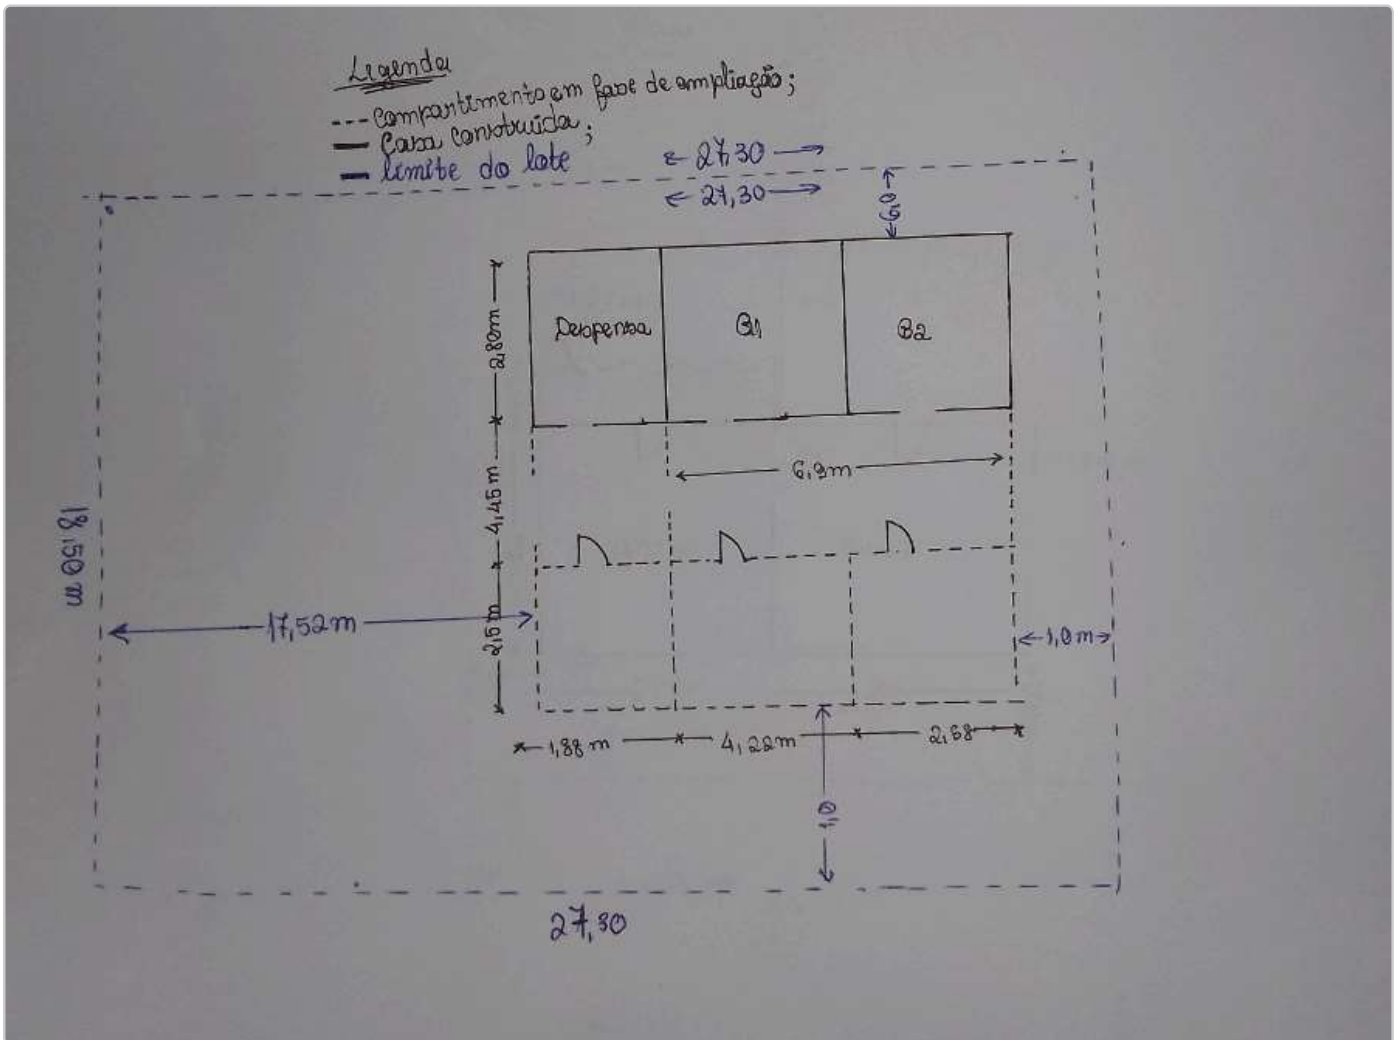 Legenda
--- Compartimento em fase de ampliação;
— Casa construída;
— limite do lote
27,30
27,30
0,9
Despensa
Q1
B2
2,80m
4,45m
6,9m
18,50 m
17,52m
2,5m
1,0m
1,88 m
4,22m
2,68
27,30